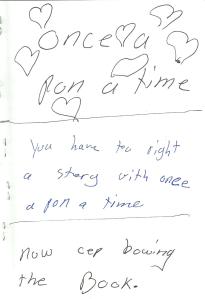 once a
pon a time
you have to right
a story with once
a pon a time
now cep bowing
the Book.